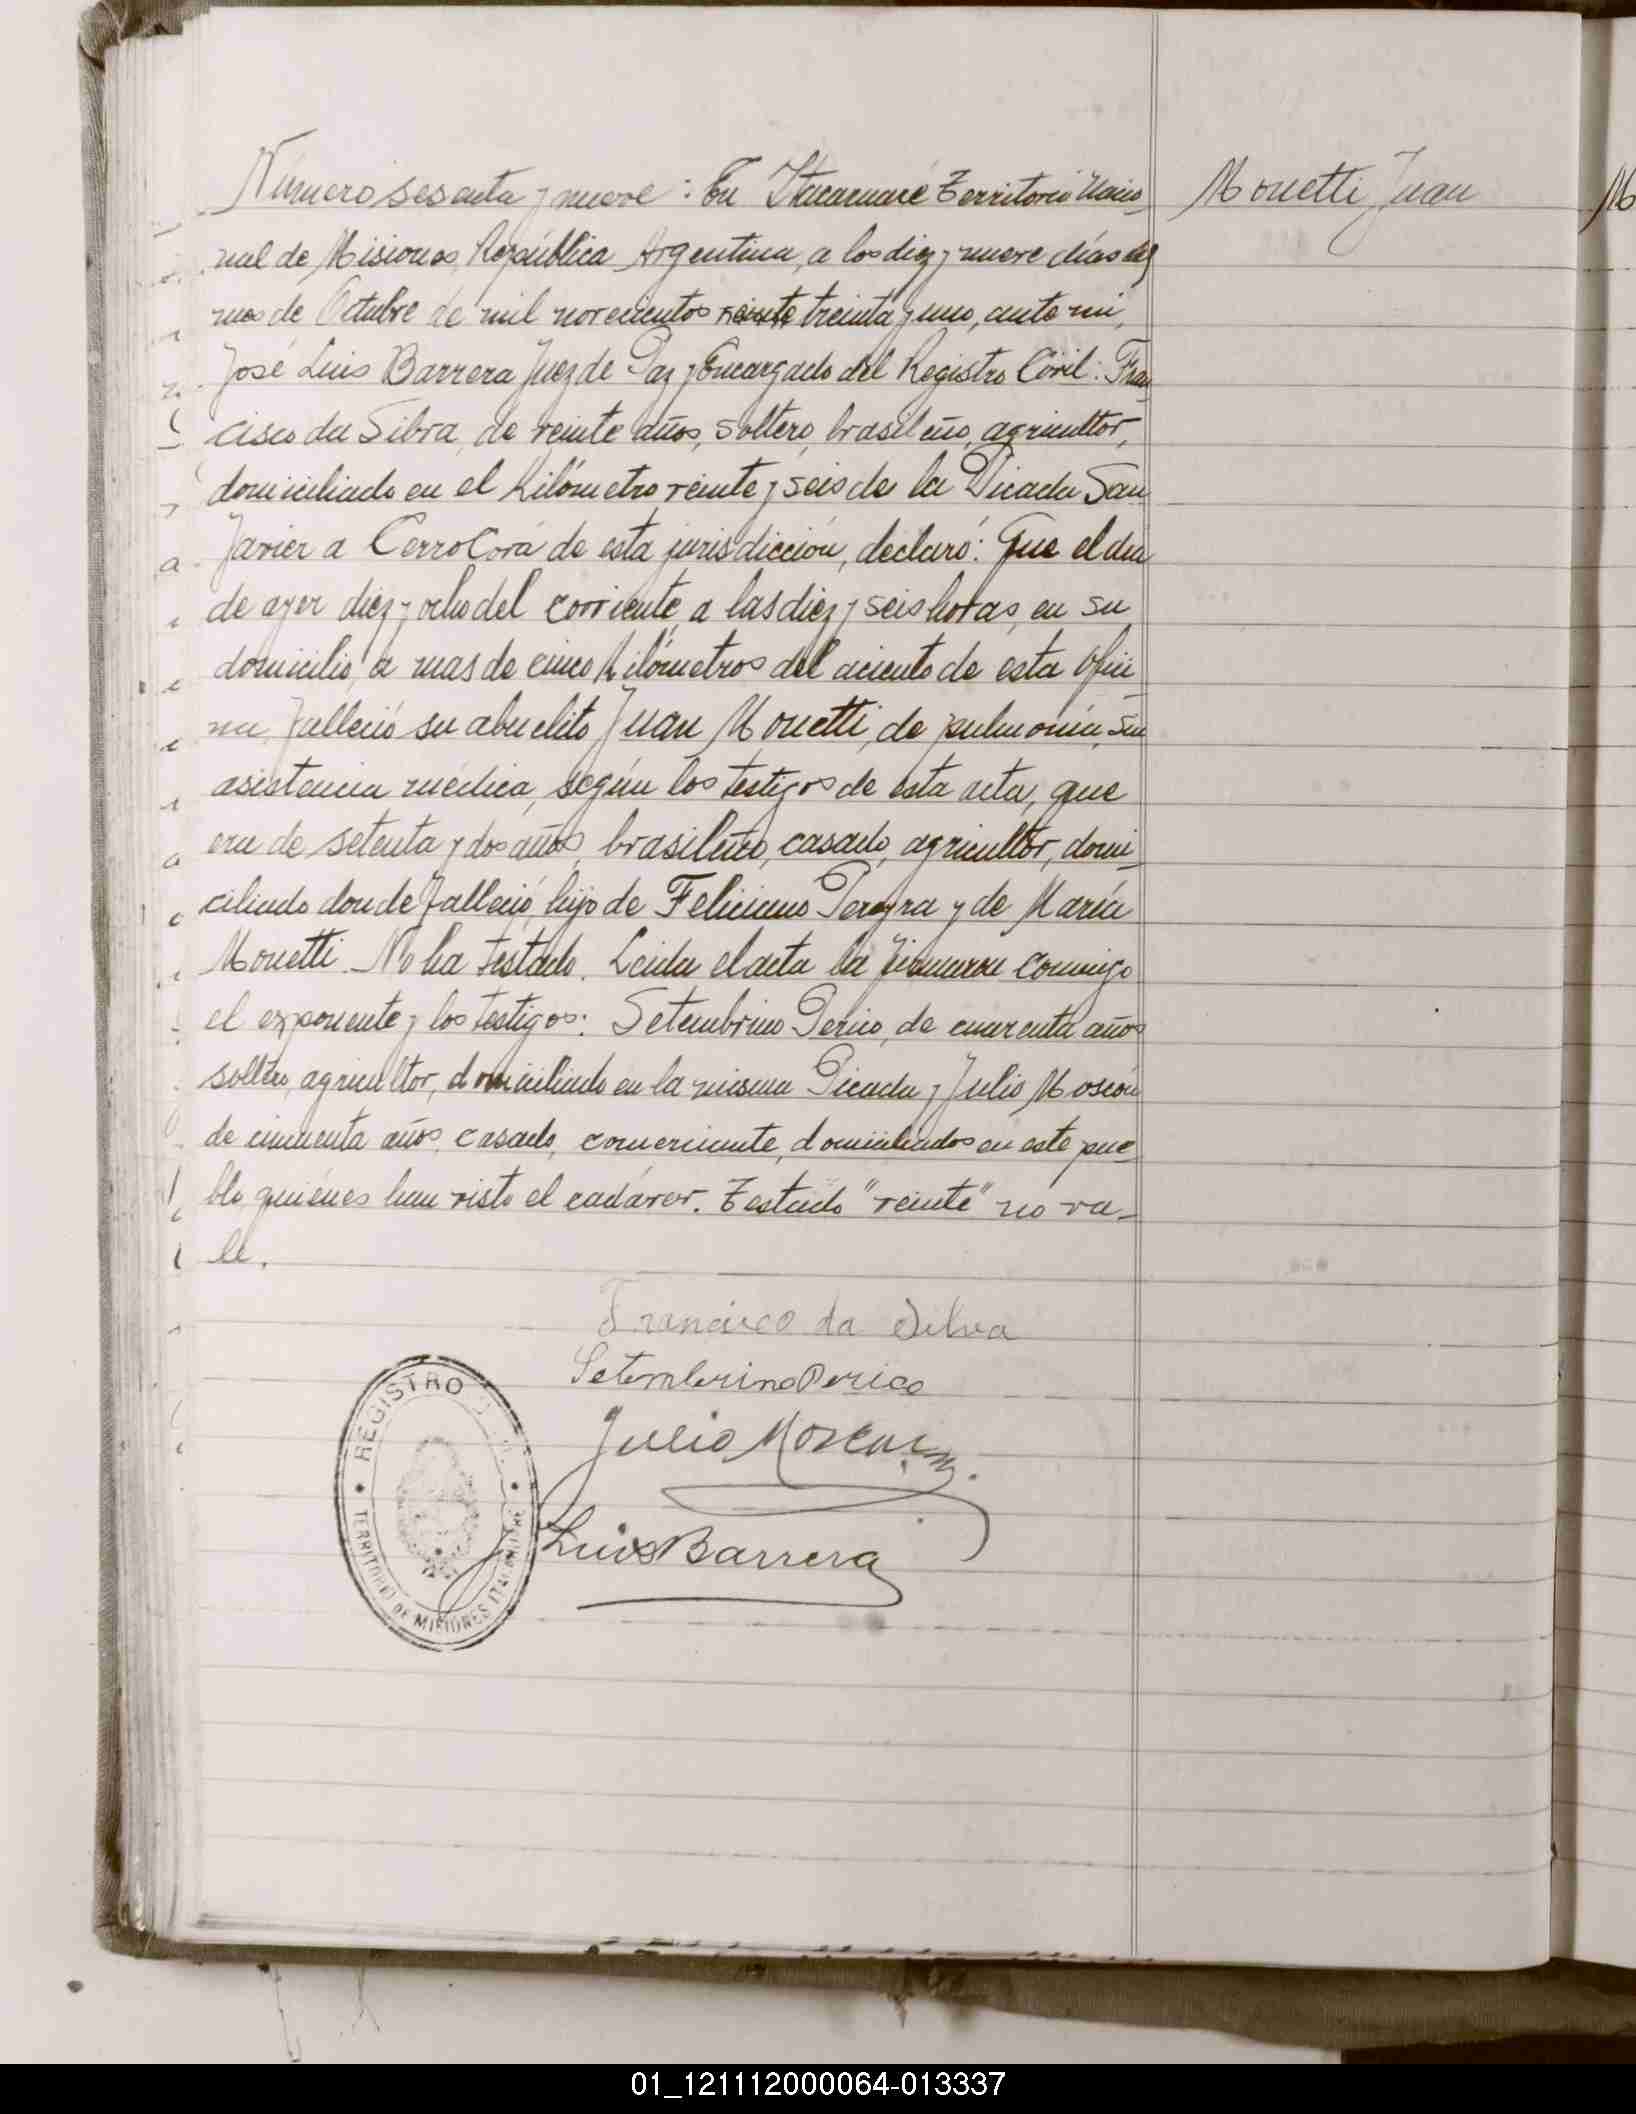 Número sesenta y nueve: En Itacaruaré Territorio Nacio-
nal de Misiones, República Argentina, a los diez y nueve días del
mes de Octubre de mil novecientos veinte treinta y uno, ante mi,
José Luis Barrera Juez de Paz y Encargado del Registro Civil: Fran-
cisco da Silva, de veinte años, soltero, brasileño, agricultor,
domiciliado en el kilómetro veinte y seis de la Picada San
Javier a Cerro Corá de esta jurisdicción, declaró: Que el dia
de ayer diez y ocho del corriente, a las diez y seis horas, en su
domicilio, a mas de cinco kilómetros del aciento de esta ofici-
na, falleció su abuelito Juan Monetti, de pulmonía, sin
asistencia médica, según los testigos de esta acta, que
era de setenta y dos años, brasileño, casado, agricultor, domi-
ciliado donde falleció, hijo de Feliciano Pereyra y de María
Monetti. No ha testado. Leida el acta la firmaron conmigo
el exponente y los testigos: Setembrino Perico, de cuarenta años
soltero, agricultor, domiciliado en la misma Picada y Julio Moscón
de cincuenta años, casado, comerciante, domiciliados en este pue-
blo, quiénes han visto el cadáver. Testado "veinte" no va-
le.
Monetti Juan
Francisco da Silva
Setembrino Perico
Julio Moscon
J Luis Barrera
REGISTRO
TERRITORIO DE MISIONES ITACARUARE
01_121112000064-013337